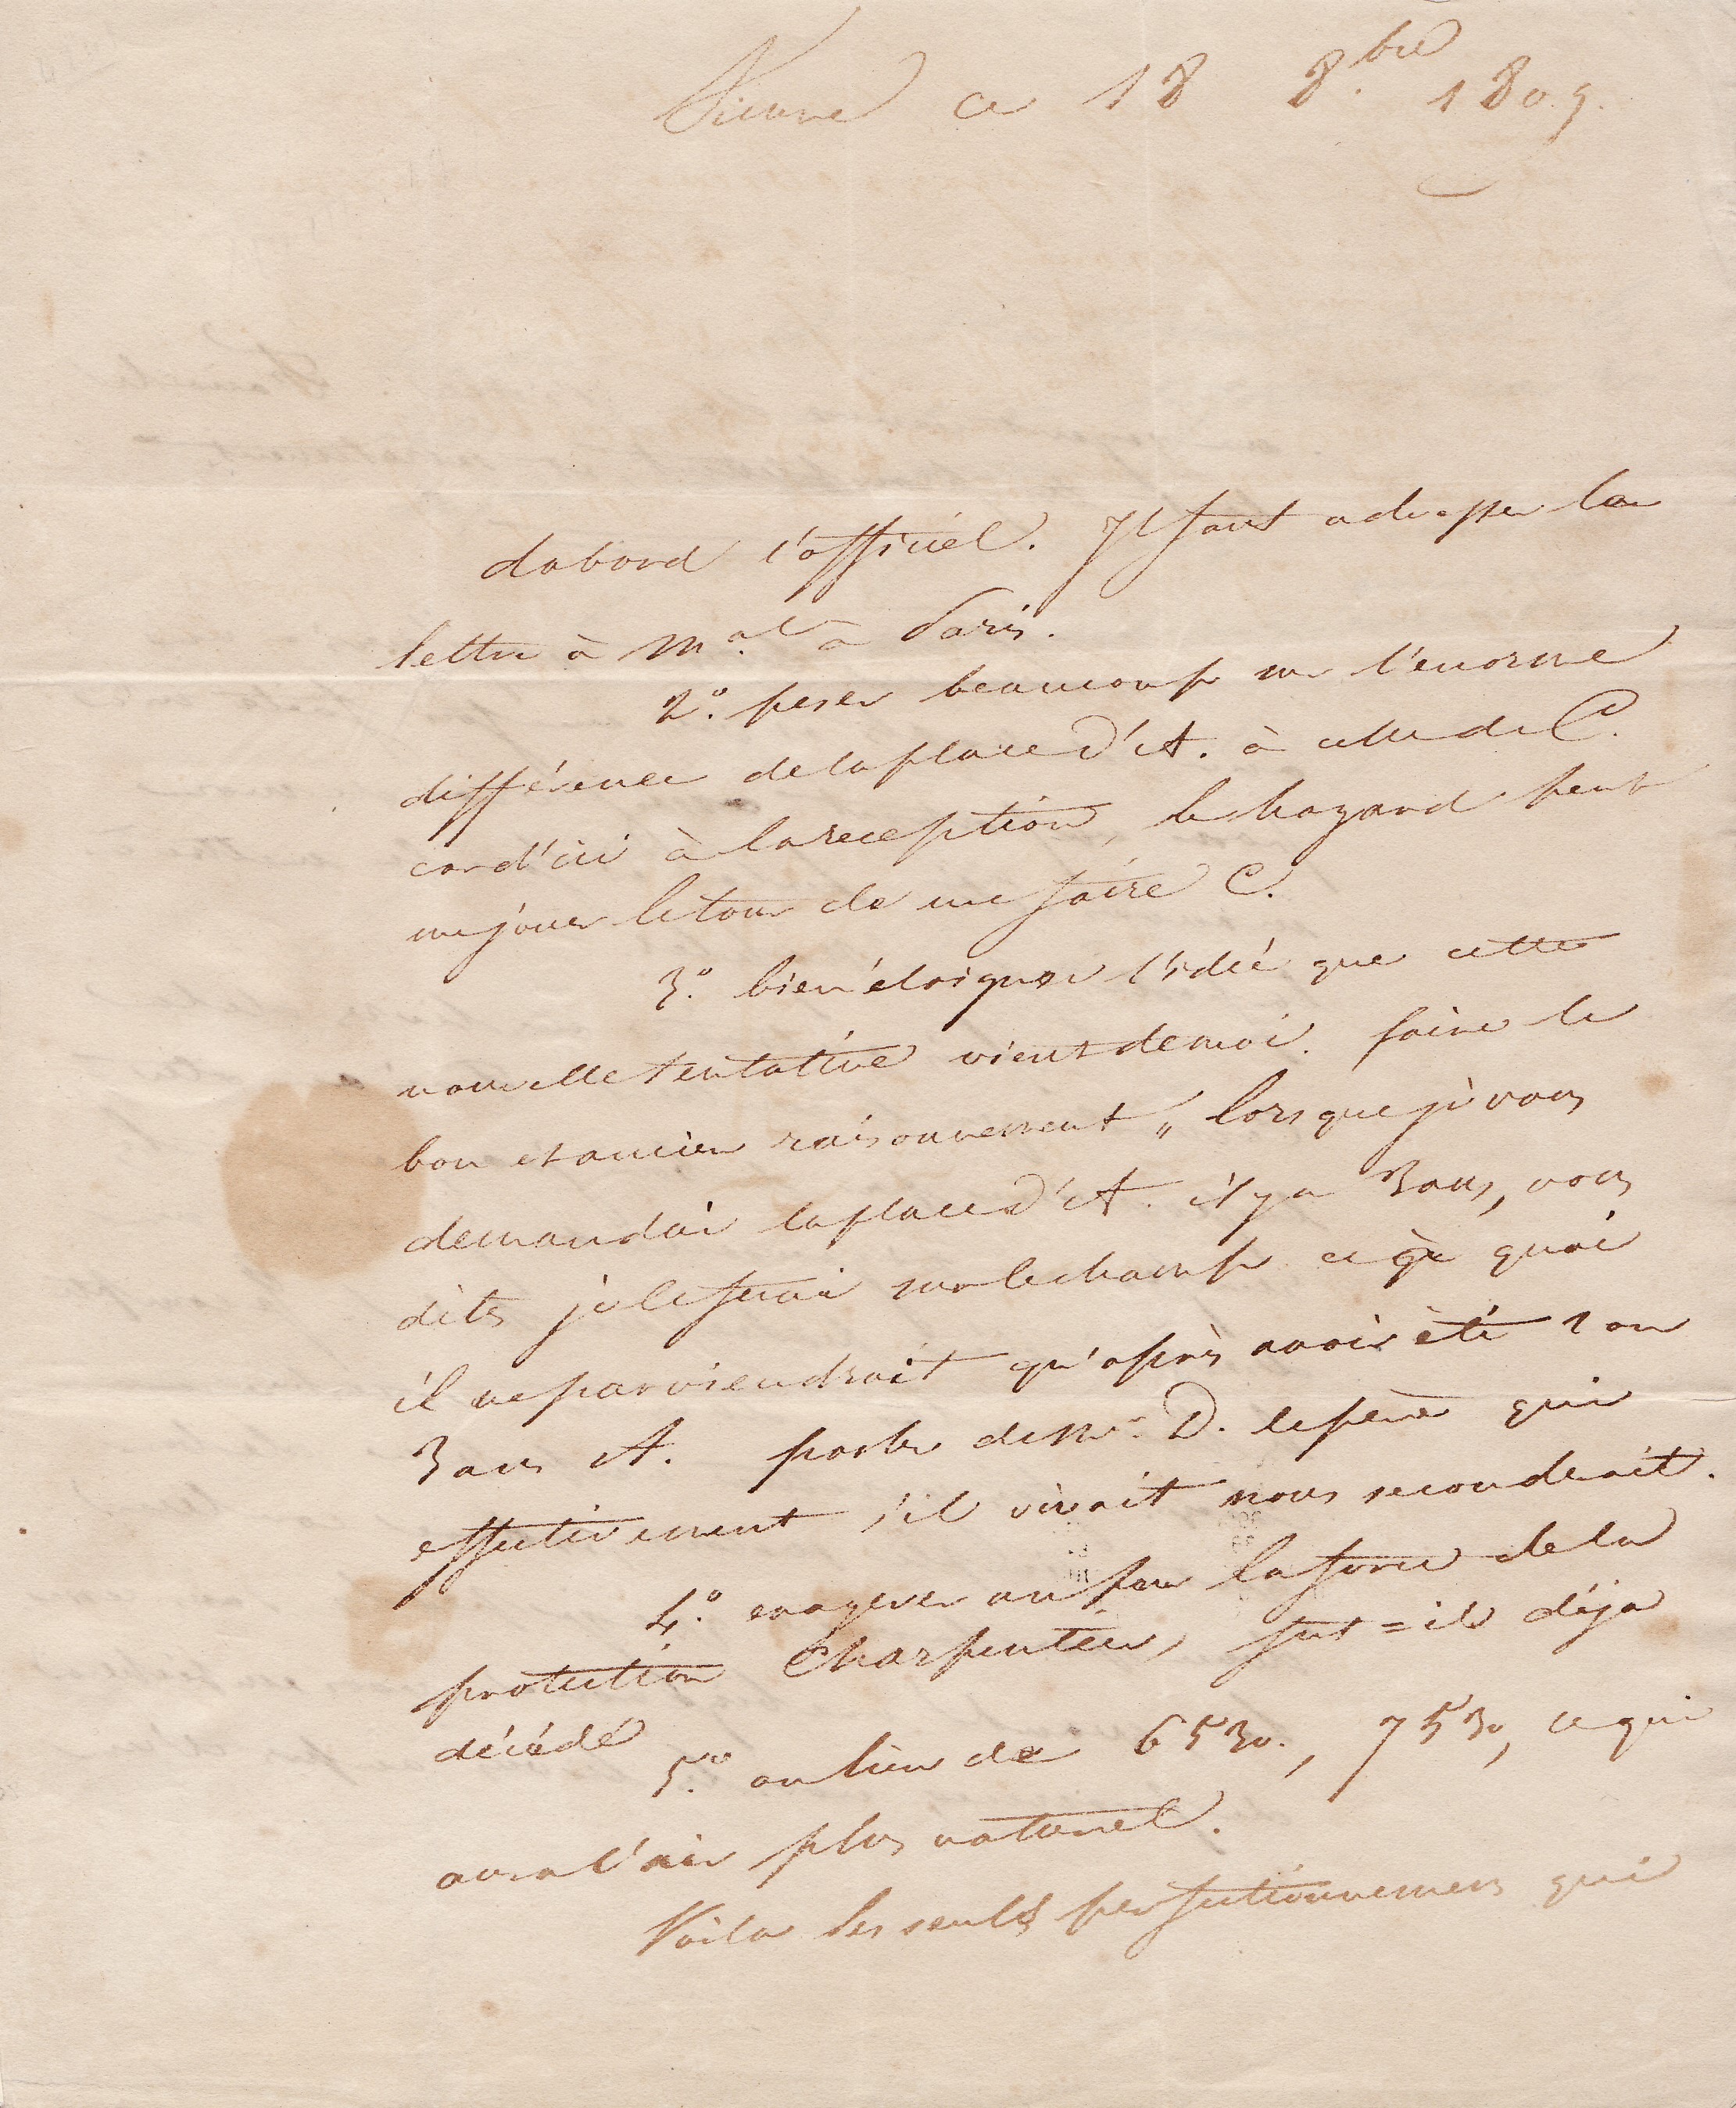 Vienne ce 18 8.bre 1809.
dabord l'officiel. Il faut adresser la
lettre à Mal à Paris.
2.º peser beaucoup sur l'enorme
différence de la place d'A. à celle de C.
car d'ici à la reception, le hazard peut
me jouer le tour de me faire C.
3.º bien éloigner l'idée que cette
nouvelle tentative vient de moi. faire le
bon et ancien raisonnement „ lorsque je vous
demandai la place d'A. il y a 3 ans, vous
dites je le ferai sur le champ ce à quoi
il ne parviendrait qu'après avoir été 2 ou
3 ans A. parler de Mr. D. le père qui
effectivement s'il vivait nous seconderait.
4.º exagerer un peu la force de la
protection Charpentier, fut=il déja
décédé
5.º au lieu de 6530., 7530, ce qui
aura l'air plus naturel.
Voila les seuls perfectionnemens qui